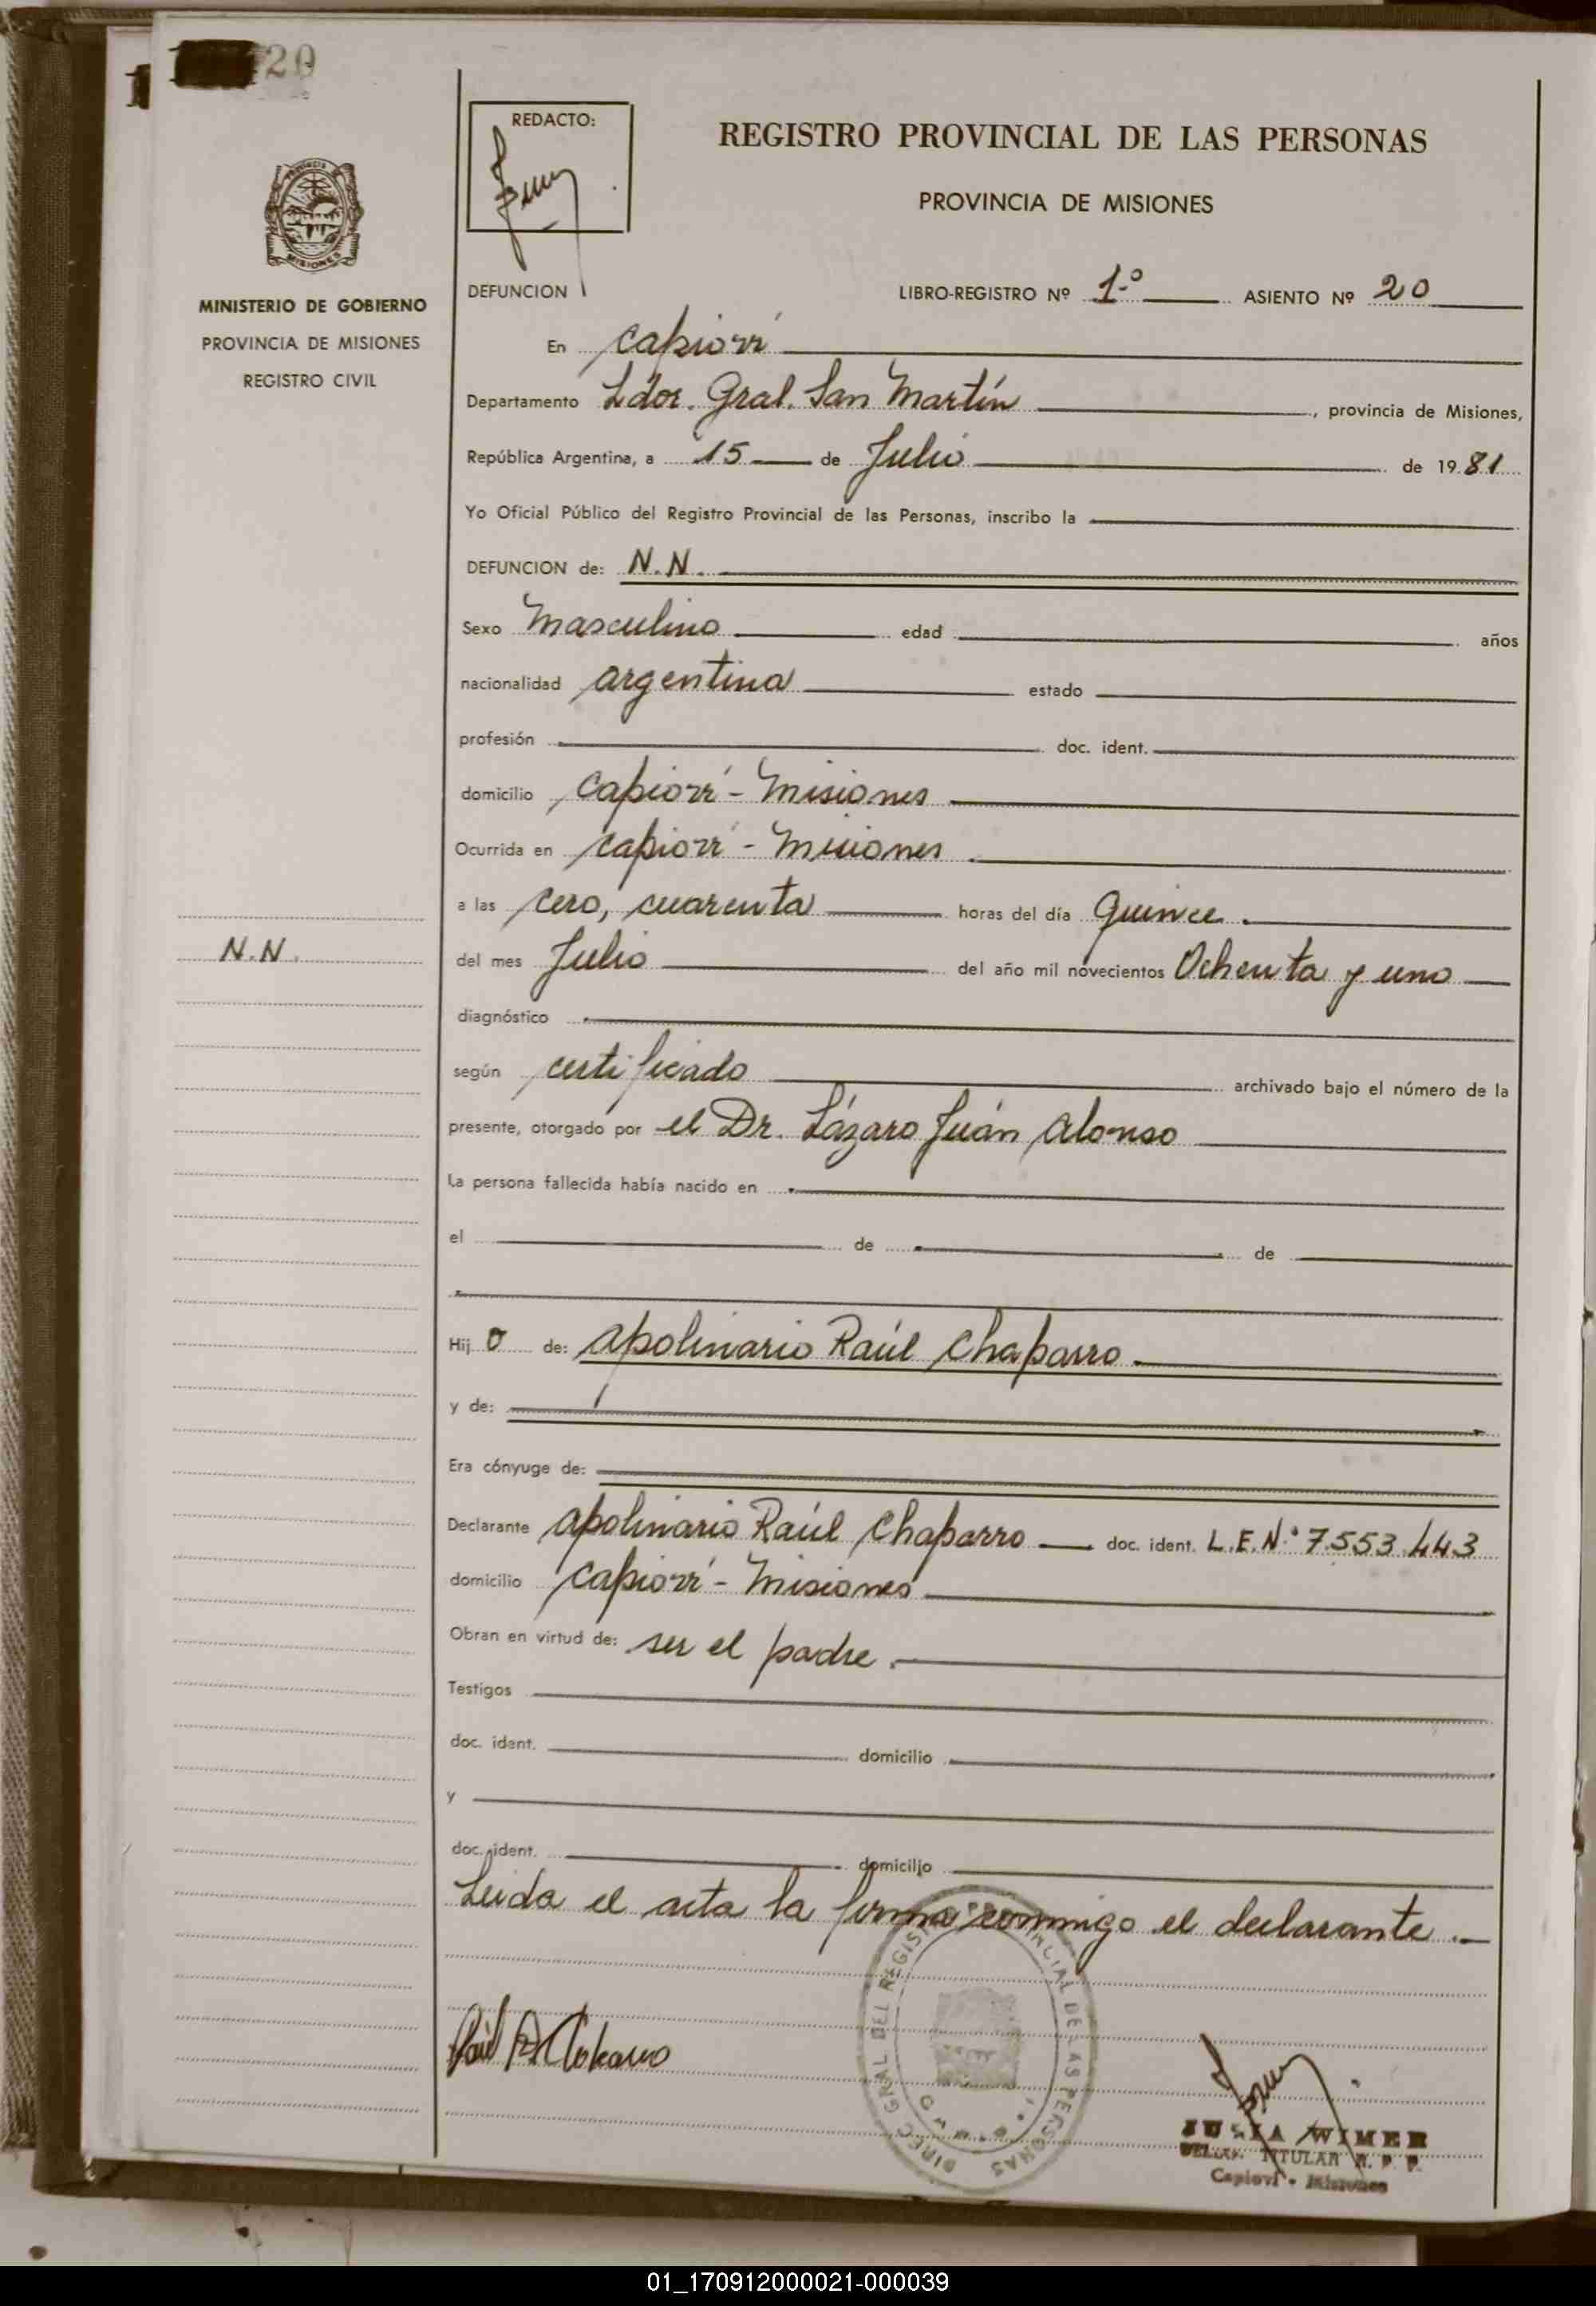 20
REDACTO:
REGISTRO PROVINCIAL DE LAS PERSONAS
PROVINCIA DE MISIONES
MISIONES
MINISTERIO DE GOBIERNO
PROVINCIA DE MISIONES
REGISTRO CIVIL
DEFUNCION
LIBRO-REGISTRO Nº 1º ASIENTO Nº 20
En Capioví
Departamento Ldor. Gral. San Martín, provincia de Misiones,
República Argentina, a 15 de Julio de 1981
Yo Oficial Público del Registro Provincial de las Personas, inscribo la
DEFUNCION de: N.N.
Sexo Masculino edad años
nacionalidad argentina estado
profesión doc. ident.
domicilio Capioví - Misiones
Ocurrida en Capioví - Misiones
a las cero, cuarenta horas del día Quince.
N.N.
del mes Julio del año mil novecientos Ochenta y uno
diagnóstico
según certificado archivado bajo el número de la
presente, otorgado por el Dr. Lázaro Juán Alonso
La persona fallecida había nacido en
el de de
Hij o de: Apolinario Raúl Chaparro
y de:
Era cónyuge de:
Declarante Apolinario Raúl Chaparro doc. ident. L.E.Nº 7.553.443
domicilio Capioví - Misiones
Obran en virtud de: ser el padre.
Testigos
doc. ident. domicilio
y
doc. ident. domicilio
Leida el acta la firma conmigo el declarante.
DIREC. GRAL DEL REGISTRO PROVINCIAL DE LAS PERSONAS
WIMER
TITULAR R. P. P.
Capioví - Misiones
01_170912000021-000039